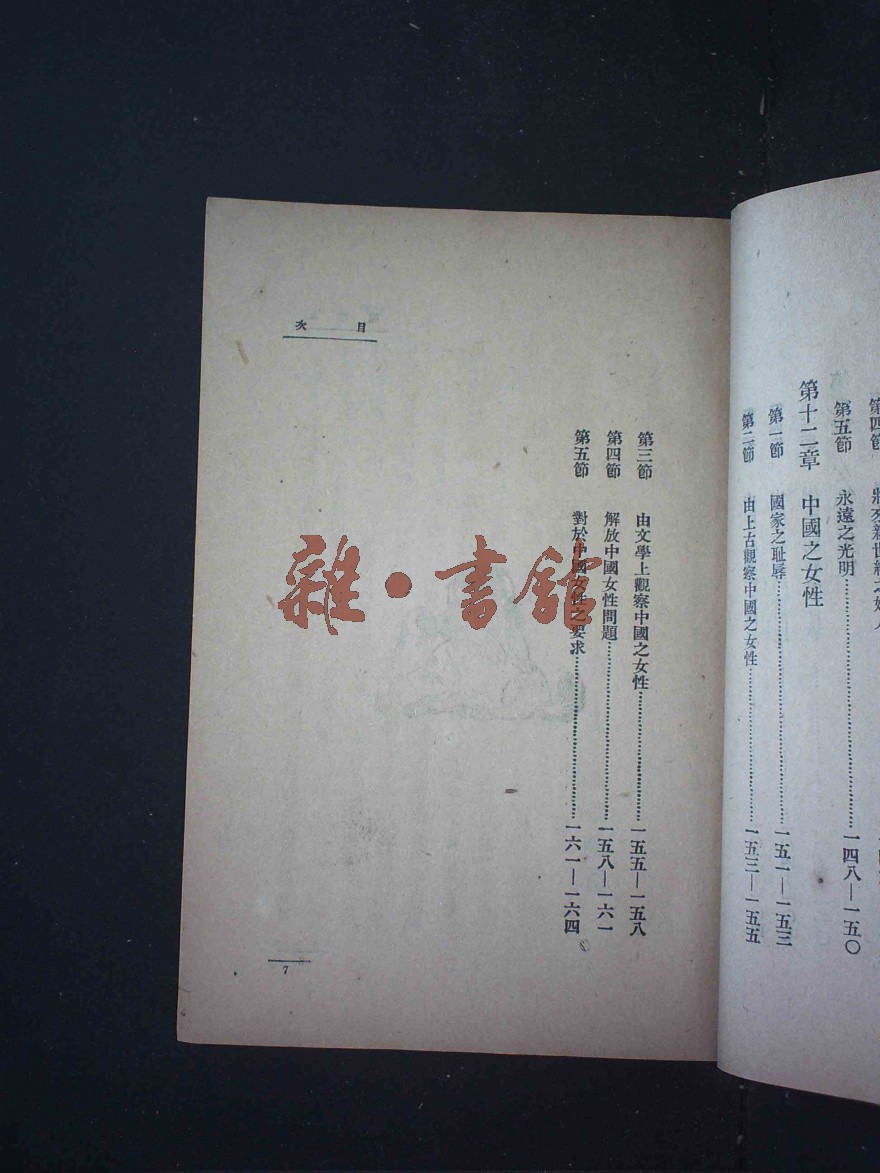 第四節
第五節 永遠之光明……一四八—一五〇
第十二章 中國之女性
第一節 國家之耻辱……一五一—一五三
第二節 由上古觀察中國之女性……一五三—一五五
目次
第三節 由文學上觀察中國之女性……一五五—一五八
第四節 解放中國女性問題……一五八—一六一
第五節 對於中國女性之要求……一六一—一六四
7
雜·書館